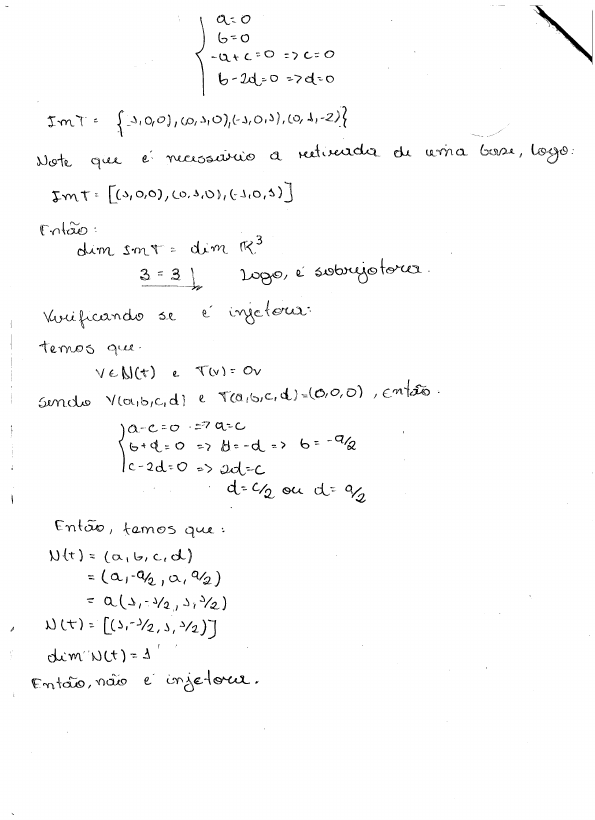 a=0
b=0
-a+c=0 => c=0
b-2d=0 => d=0
ImT = {1,0,0),(0,1,0),(-1,0,1),(0,1,-2)}
Note que é necessário a retirada de uma base, logo:
ImT = [(1,0,0),(0,1,0),(-1,0,1)]
Então:
dim ImT = dim ℝ³
3 = 3 Logo, é sobrejetora.
Verificando se é injetora:
temos que:
V∈N(t) e T(v)=0v
sendo V(a,b,c,d) e T(a,b,c,d)=(0,0,0), então.
a-c=0 => a=c
b+d=0 => b=-d => b=-a/2
c-2d=0 => 2d=c
d=c/2 ou d=a/2
Então, temos que:
N(t) = (a,b,c,d)
= (a,-a/2,a,a/2)
= a(1,-1/2,1,1/2)
N(t) = [(1,-1/2,1,1/2)]
dim N(t)=1
Então, não é injetora.